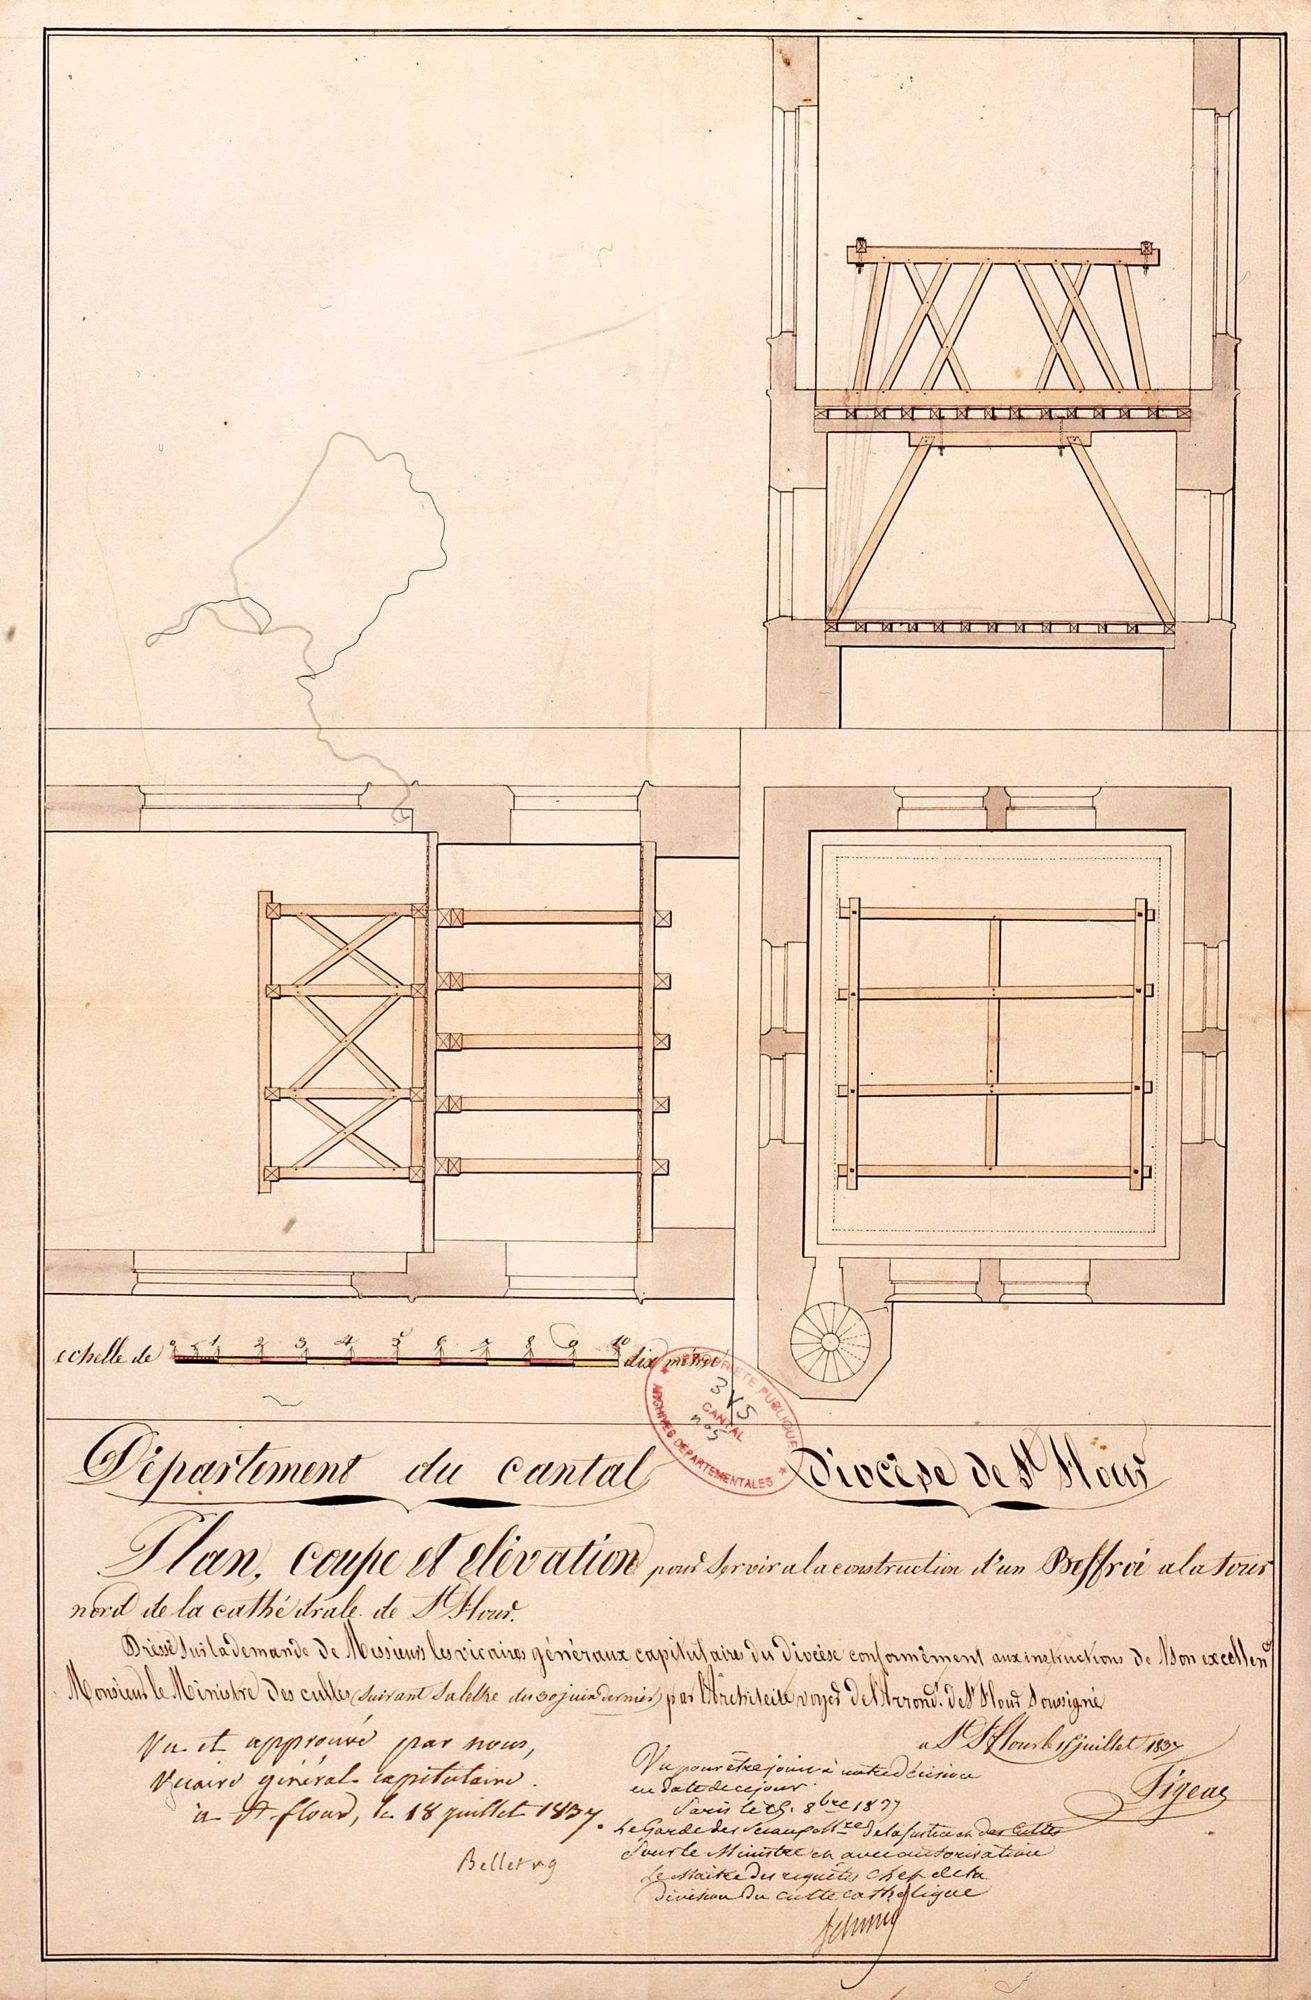 echelle de 0 1 2 3 4 5 6 7 8 9 10 dix mètres
PROPRIÉTÉ PUBLIQUE
3 V 5
CANTAL
n° 5
ARCHIVES DÉPARTEMENTALES
Département du cantal Diocèse de St Flour
Plan, coupe et elévation pour servir a la construction d'un Beffroi a la tour
nord de la cathédrale de St Flour.
Dréssé sur la demande de Messieurs les vicaires généraux capitulaires du diocèse conformément aux instructions de Son excellence
Monsieur le Ministre des cultes (suivant sa lettre du 30 juin dernier) par l'Architecte voyer de l'arrond.t de St Flour Soussigné
a St Flour le juillet 1837
Figeac
Vu et approuvé par nous,
Vicaire général capitulaire.
à St flour, le 18 juillet 1837.
Bellet vg
Vu pour être joint à notre décision
en date de ce jour.
Paris le 8bre 1837
Le Garde des Sceaux Mtre de la justice et des Cultes
Pour le Ministre et avec autorisation
Le Maitre des requêtes Chef de la
division du culte catholique